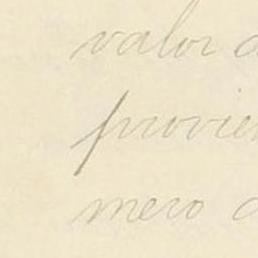 valor d
provien
mero d